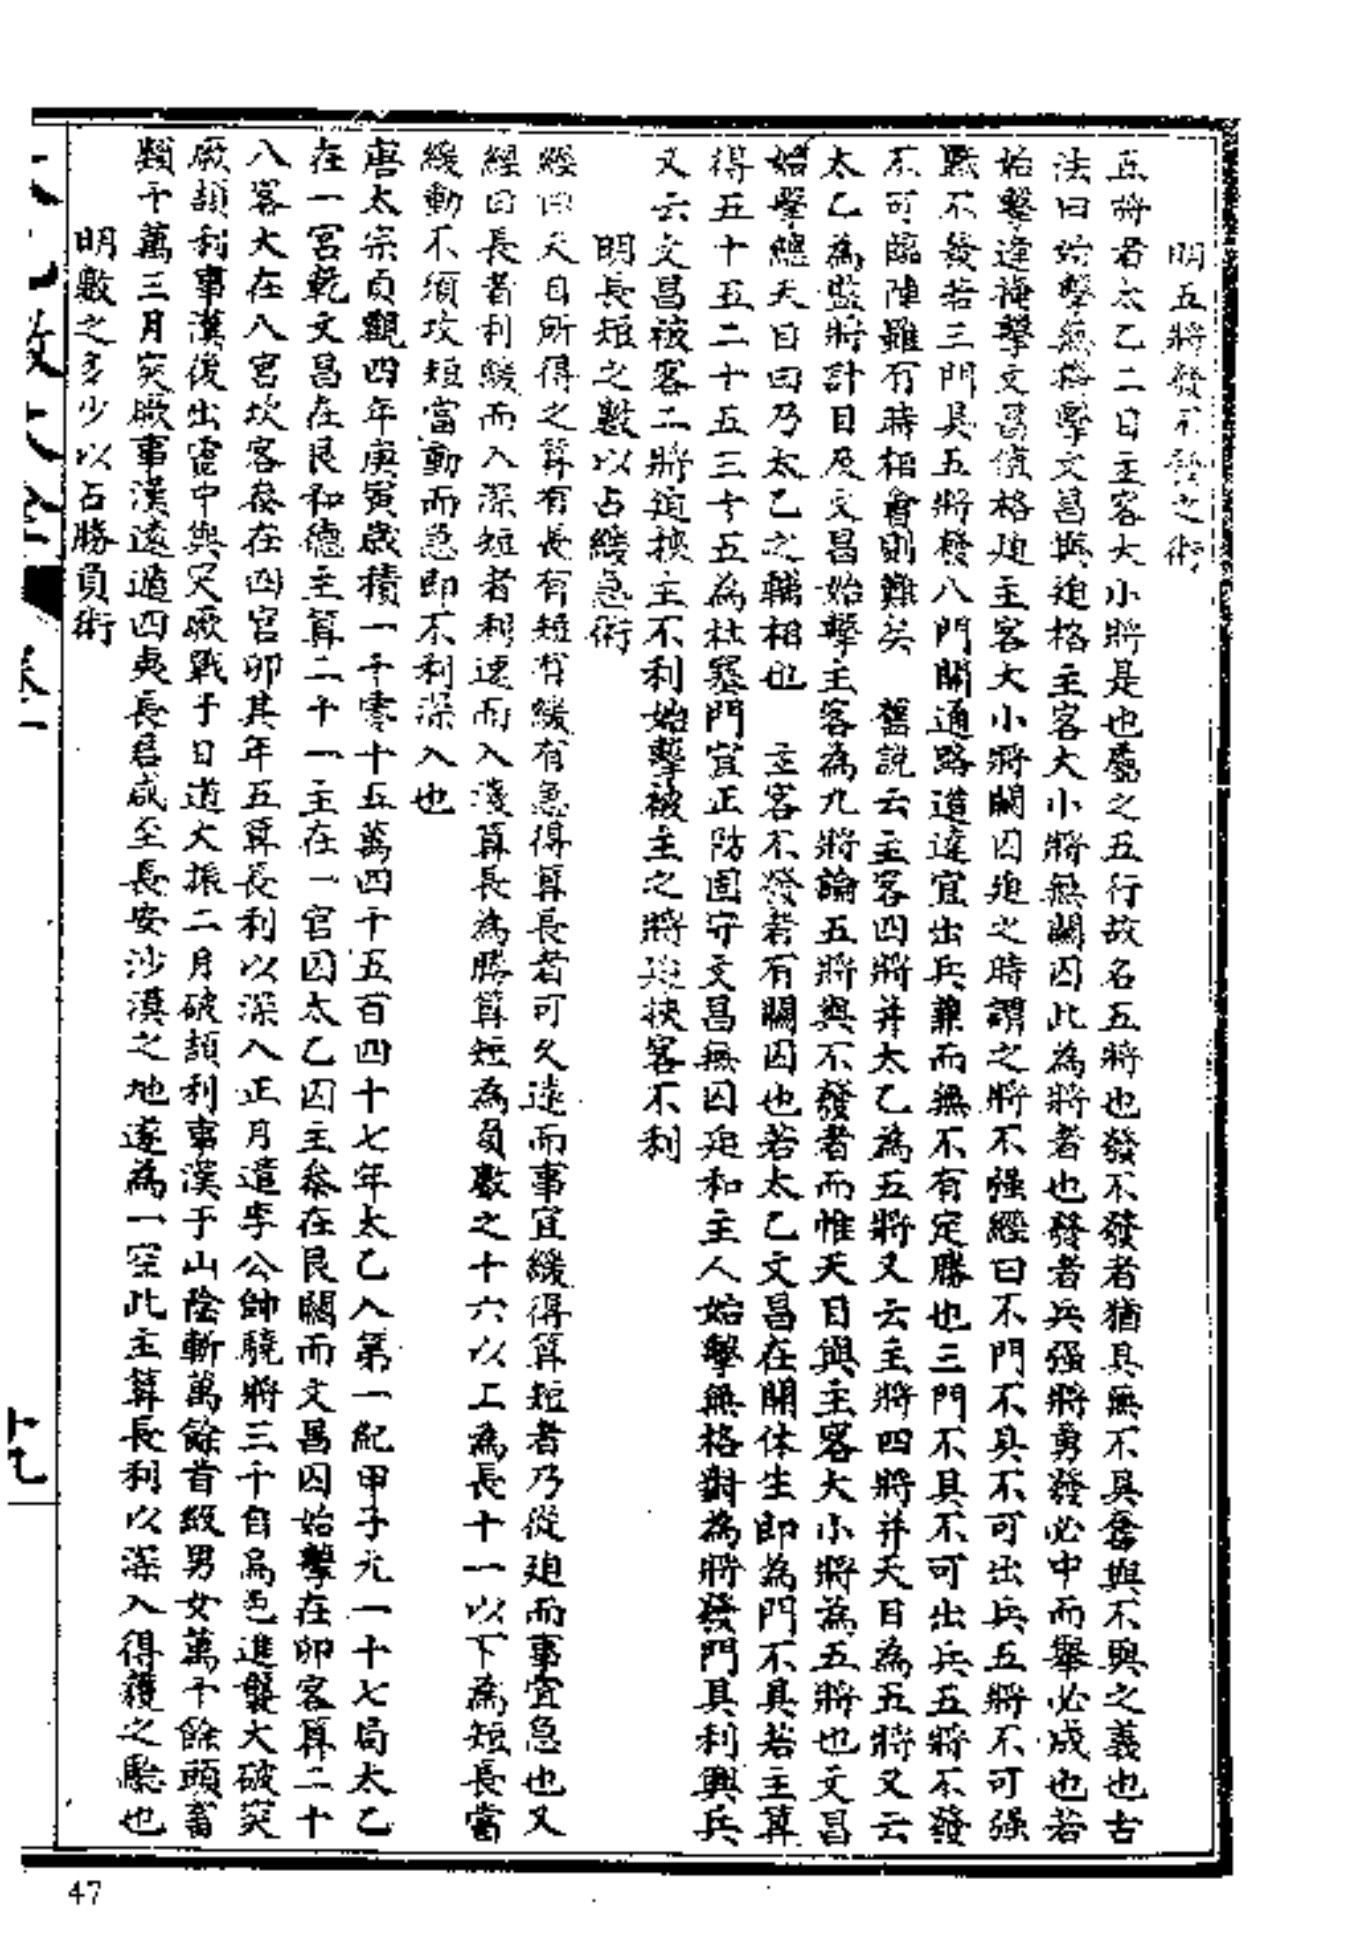 明五將發不發之術
五將者太乙二目主客大小將是也屬之五行故名五將也發不發者猶具無不具奮與不興之義也古
法曰始擊無格擊文昌無迫格主客大小將無關囚此為將者也發者兵强將勇發必中而舉必成也若
始擊逢掩擊文昌值格迫主客大小將關囚迫之時謂之將不强經曰不門不具不可出兵五將不可强
縣不發若三門具五將發八門開通路道達宜出兵兼而無不有定勝也三門不具不可出兵五將不發
不可臨陣雖有時相會則難矣　舊說云主客四將并太乙為五將又云主將四將并天目為五將又云
太乙為監將計目及文昌始擊主客為九將論五將與不發者而惟天目與主客大小將為五將也文昌
始擊總天目曰乃太乙之輔相也　主客不發者有關囚也若太乙文昌在開休生即為門不具若主算
得五十五二十五三十五為杜塞門宜正防固守文昌無囚迫和主人始擊無格對為將發門具利興兵
又云文昌被客二將迫挾主不利始擊被主之將迫挾客不利
明長短之數以占緩急術
經曰天目所得之算有長有短有緩有急得算長者可久遠而事宜緩得算短者乃從迫而事宜急也又
經曰長者利緩而入深短者利速而入淺算長為勝算短為負數之十六以上為長十一以下為短長當
緩動不須攻短當動而急即不利深入也
唐太宗貞觀四年庚寅歲積一千零十五萬四千五百四十七年太乙入第一紀甲子元一十七局太乙
在一宮乾文昌在艮和德主算二十一主在一宮囚太乙囚主參在艮關而文昌囚始擊在卯客算二十
八客大在八宮坎客參在四宮卯其年五算長利以深入正月遣李公帥驍將三千自馬邑進襲大破突
厥頡利事漢後出雲中與突厥戰于白道大振二月破頡利事漢于山陰斬萬餘首級男女萬千餘頭畜
類千萬三月突厥事漢遠遁四夷長君咸至長安沙漠之地遂為一空此主算長利以深入得獲之驗也
明數之多少以占勝負術
卷一
十九
47